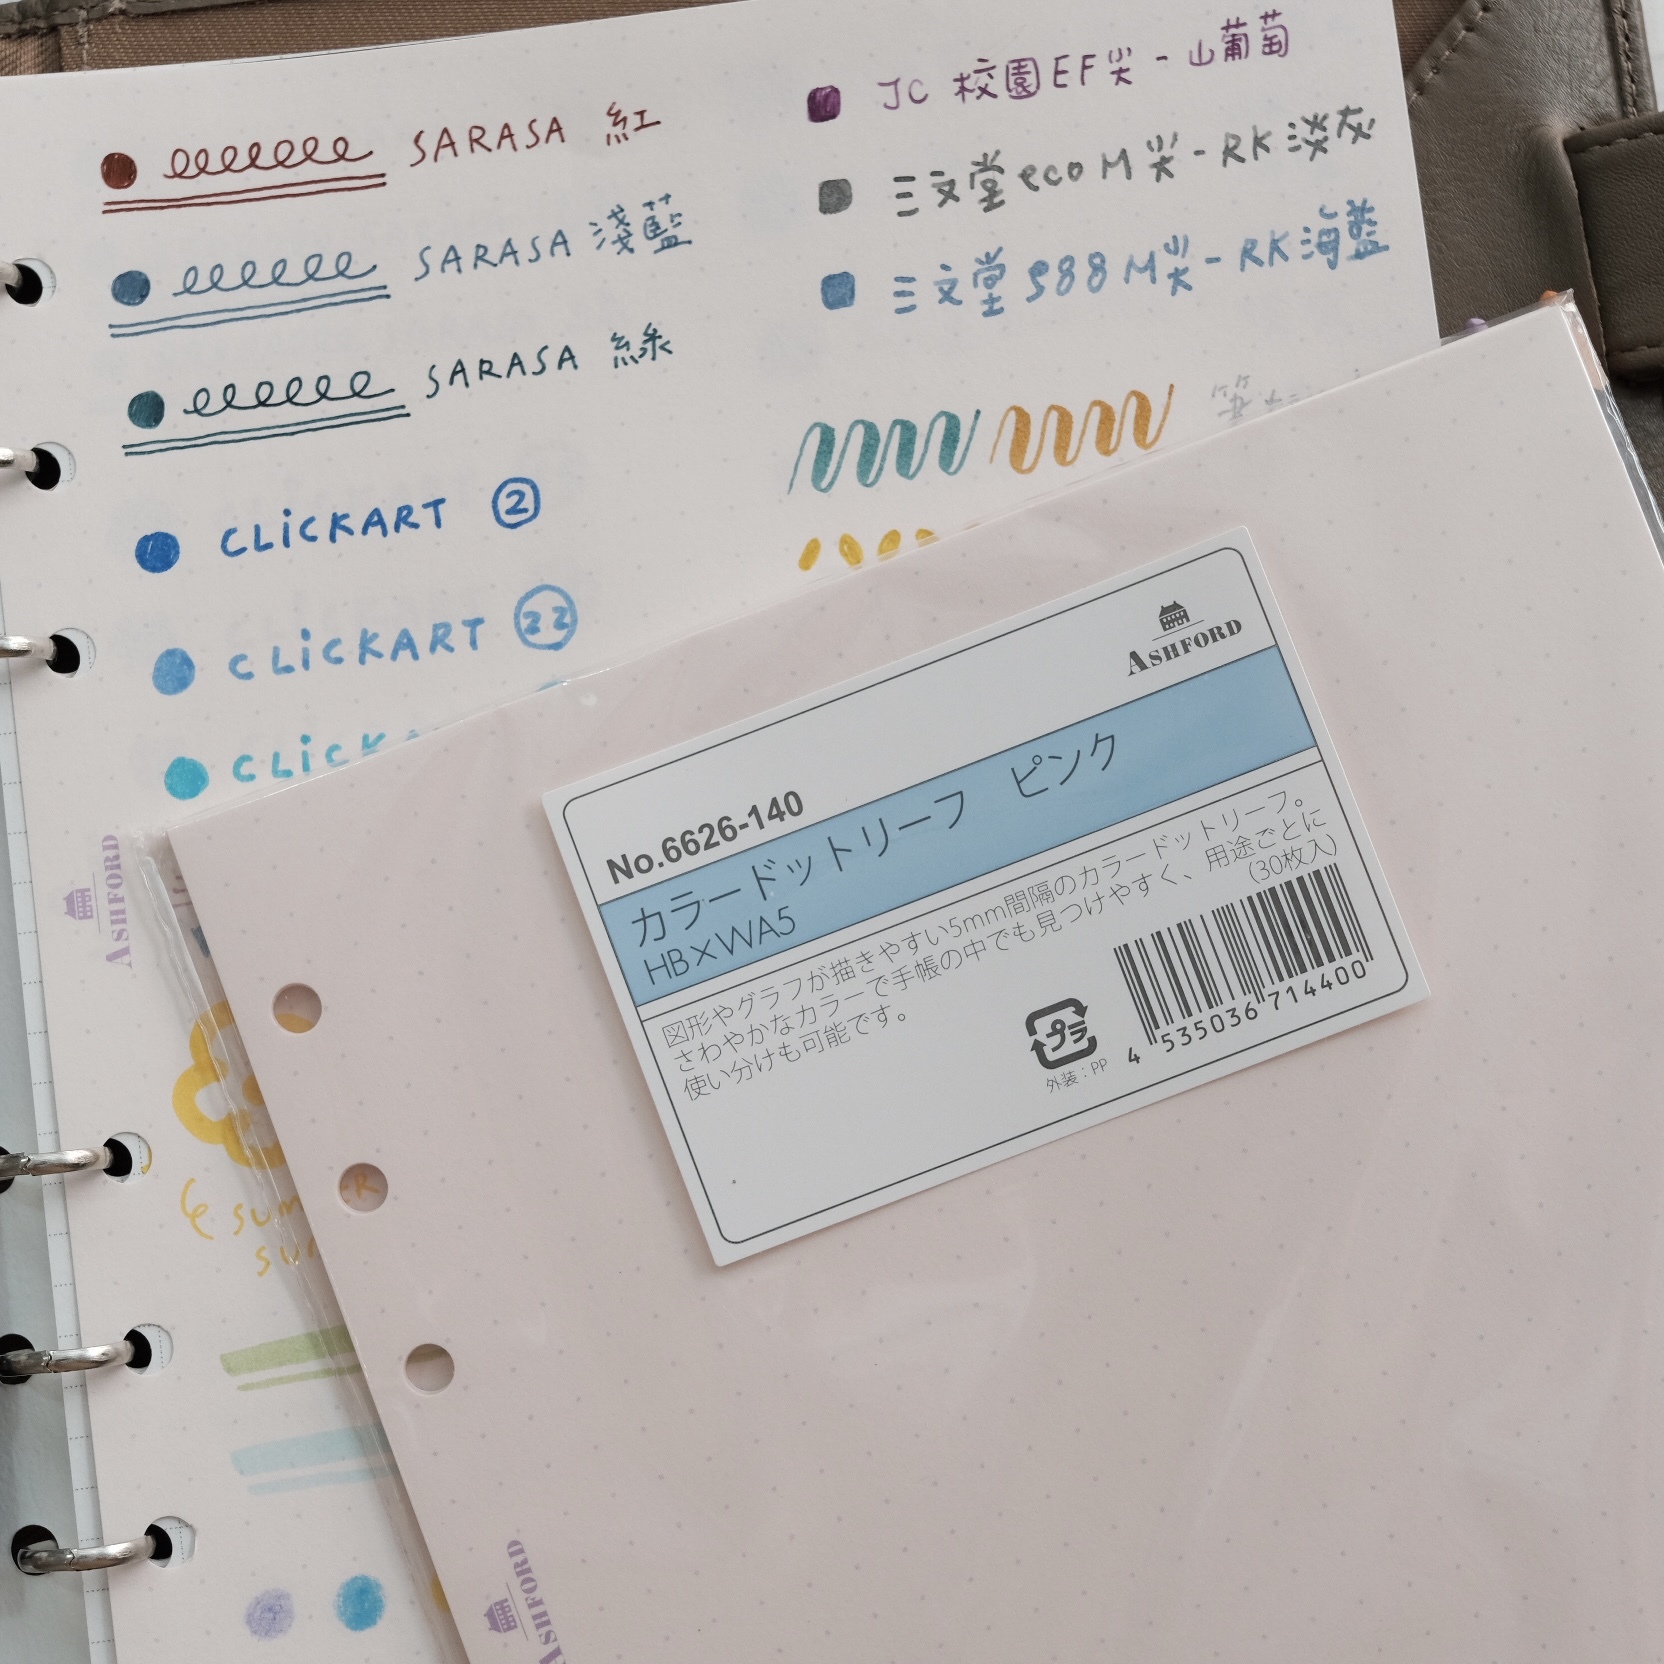 SARASA 紅
SARASA 淺藍
SARASA 綠
CLiCKART ②
CLiCKART 22
CLiCKA
JC 校園EF尖-山葡萄
三文堂eco M尖-RK淡灰
三文堂 588 M尖-RK海藍
ASHFORD
sum
su
R
ASHFORD
No.6626-140
カラードットリーフ ピンク
HB×WA5
図形やグラフが描きやすい5mm間隔のカラードットリーフ。
さわやかなカラーで手帳の中でも見つけやすく、用途ごとに
使い分けも可能です。
(30枚入)
プラ
外装：PP
4 535036 714400
ASHFORD